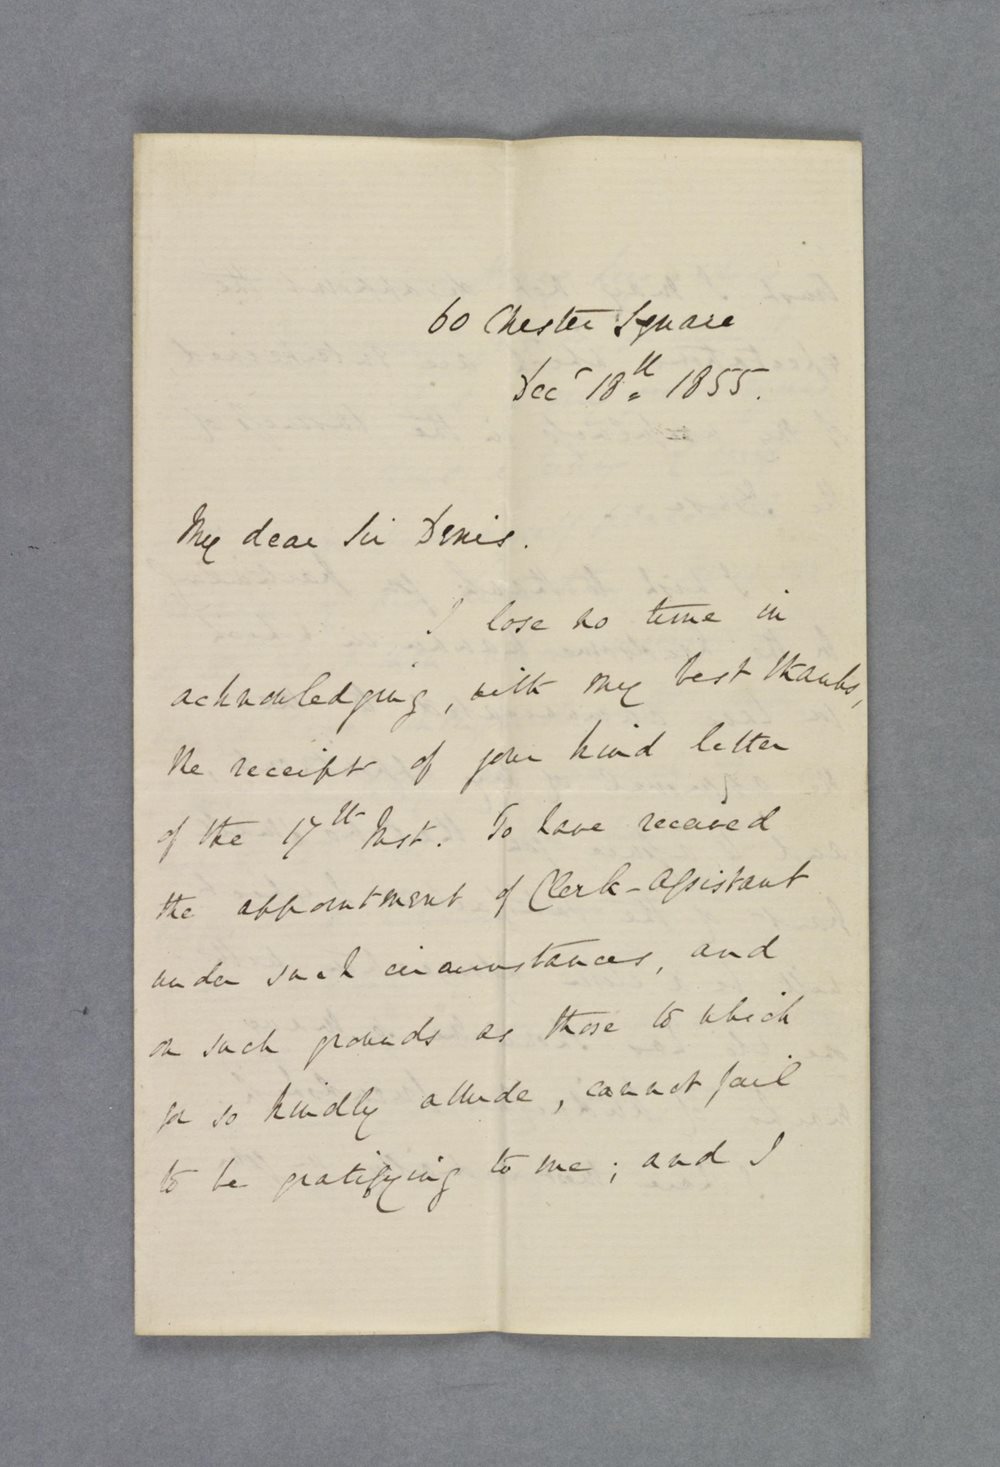 60 Chester Square
Decr 18th 1855.
My dear Sir Denis.
I lose no time in
acknowledging, with my best thanks,
the receipt of your kind letter
of the 17th Inst. To have received
the appointment of Clerk-Assistant
under such circumstances, and
on such grounds as those to which
you so kindly allude, cannot fail
to be gratifying to me; and I